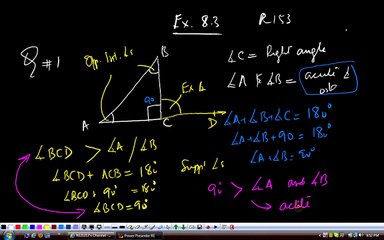 Ex. 8.3
R 153
Q #1
Opp. Int. ∠s
B
∠C = Right angle
∠A & ∠B = acute ∠
90
Ex ∠
A
C
D
∠A+∠B+∠C = 180°
∠A+∠B+90 = 180°
∠A+∠B = 90°
∠BCD > ∠A / ∠B
∠BCD + ACB = 180°
Suppl ∠s
∠BCD + 90° = 180°
∠BCD = 90°
90° > ∠A and ∠B
→ acute